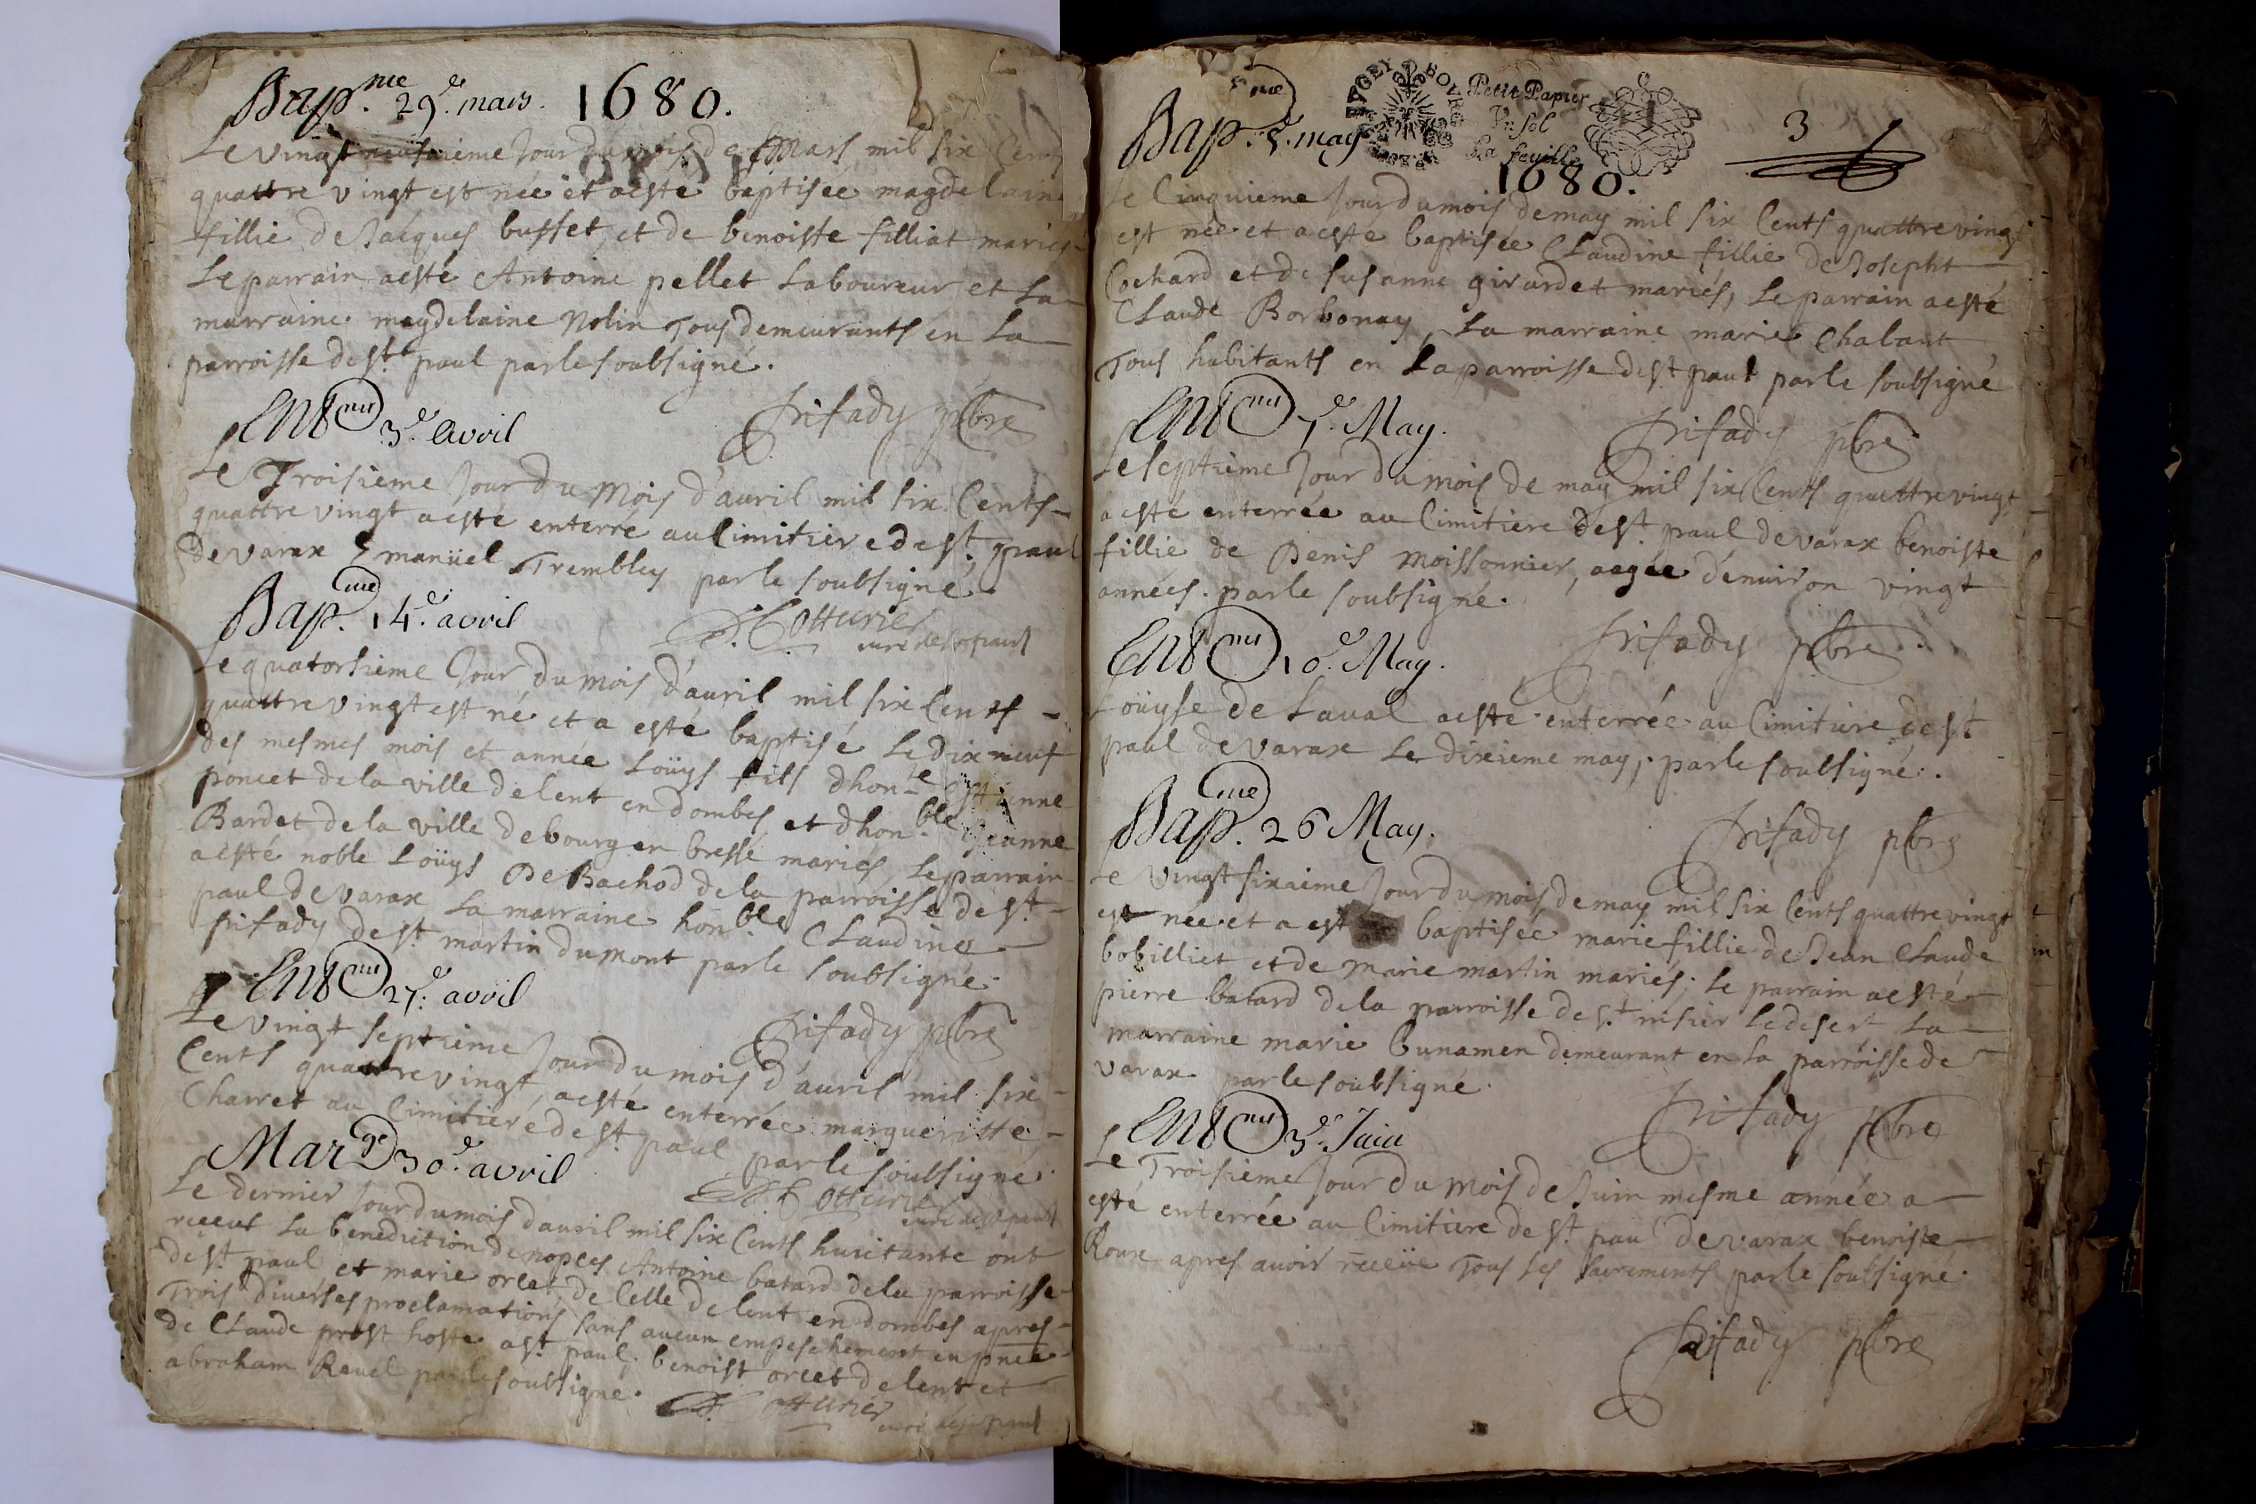 Bap.me 29.e mars. 1680.
Le vingt neufvieme Jour du mois de Mars mil six Cents
quattre vingt est née et a esté baptisée magdelaine
fillie de Jacques buffet et de benoiste filliat mariés
Le parrain a esté Antoine pellet Laboureur et La
marraine magdelaine Nolin Tous demeurants en La
parroisse de st. paul par le soubsigné.
Trifady pbre
Ent.nt 3.e avril
Le Troisieme Jour du Mois d'auril mil six Cents
quattre vingt a esté enterré au Cimitiere de st. paul
de varax Emanüel Trembley par le soubsigné.
Cotturier
curé de st paul
Bap.me 14.e avril
Le quatorsieme Jour du mois d'auril mil six Cents
quattre vingt est né et a esté baptisé Le dix neuf
des mesmes mois et année Loüys fils d'hon.le estienne
poncet de la ville de lent en dombes et d'hon.ble Jeanne
Bardet de la ville de bourg en bresse mariés, Le parrain
a esté noble Loüys De Bachod de la parroisse de st.
paul de varax La marraine hon.ble Claudine
Trifady de st. martin du mont par le soubsigné.
Trifady pbre
Ent.nt 27.e avril
Le vingt septieme Jour du mois d'auril mil six
Cents quattre vingt, a esté enterrée margueritte
Charret au Cimitiere de st. paul par le soubsigné.
Cotturier
curé de st paul
Mar.ge 30.e avril
Le dernier Jour du mois d'auril mil six Cents huictante ont
receut La benediction de nopces Antoine batard de la parroisse
de st. paul et marie orcet de Celle de lent en dombes apres
Trois diverses proclamations sans aucun empeschement en pnce
de Claude prost hoste a st. paul, benoist orcet de lent et
abraham Ravel par le soubsigné.
Cotturier
curé de st paul
Petit Papier
Un sol
La feuille
3
Bap.me 5. may
1680.
Le Cinquieme Jour du mois de may mil six Cents quattre vingt
est née et a esté baptisée Claudine fillie de Josepht
Cochard et de susanne girardet mariés, Le parrain a esté
Claude Borbonay, La marraine marie Chalant
Tous habitants en La parroisse de st. paul par le soubsigné
Trifady pbre
Ent.nt 7.e May.
Le septieme Jour du mois de may mil six Cents quattre vingt
a esté enterrée au Cimitiere de st. paul de varax benoiste
fillie de Denis Moissonnier, aagée d'enuiron vingt
années. par le soubsigné.
Trifady pbre
Ent.nt 10.e May.
Loüyse de Laual a esté enterrée au Cimitiere de st
paul de varax Le dixieme may, par le soubsigné.
Trifady pbre
Bap.me 26 May.
Le Vingt sixieme Jour du mois de may mil six Cents quattre vingt
est née et a est baptisée marie fillie de Jean Claude
bobilliet et de marie martin mariés; Le parrain a esté
pierre batard de la parroisse de st. nisier Le desert La
marraine marie bunamen demeurant en La parroisse de
varax par le soubsigné.
Trifady pbre
Ent.nt 3.e Juin
Le Troisieme Jour du Mois de Juin mesme année a
esté enterrée au Cimitiere de st. pau de varax benoiste
Roux apres auoir receüe Tous Les sacrements par le soubsigné.
Trifady pbre